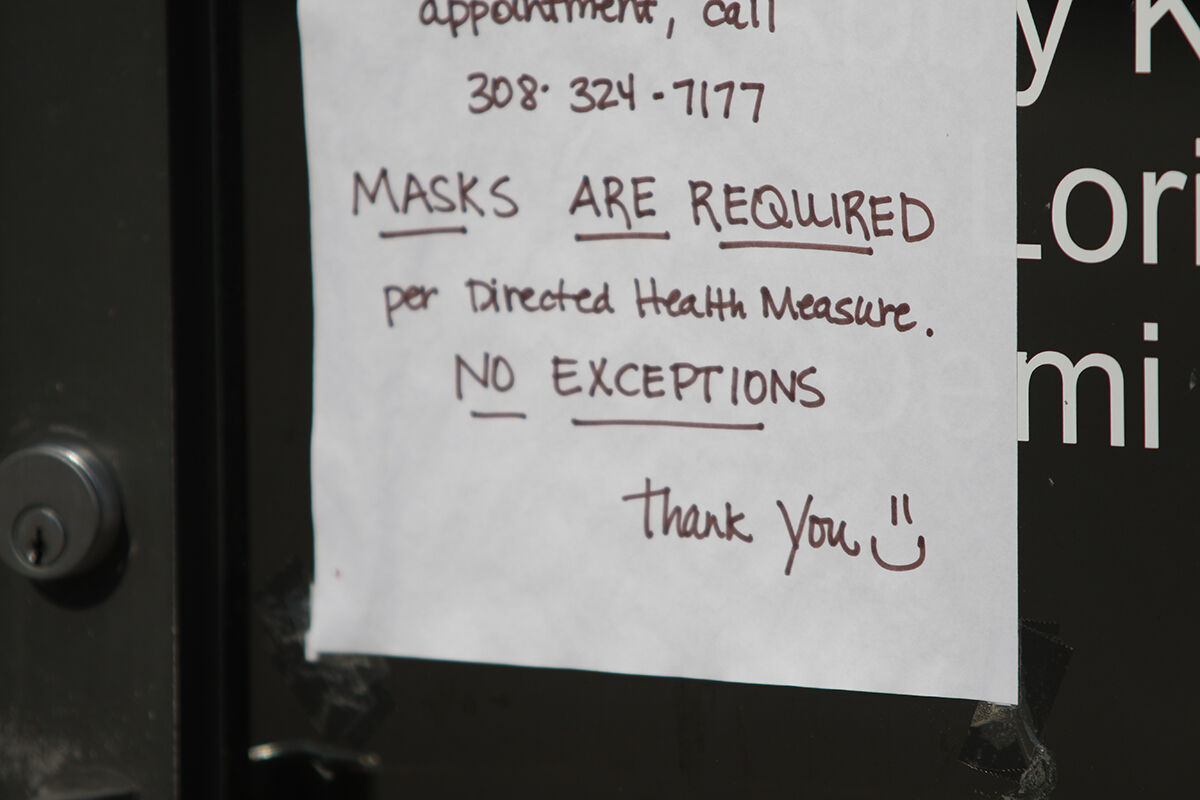 appointment, call
308· 324 - 7177
MASKS ARE REQUIRED
per Directed Health Measure.
NO EXCEPTIONS
Thank You
y K
Lori
emi